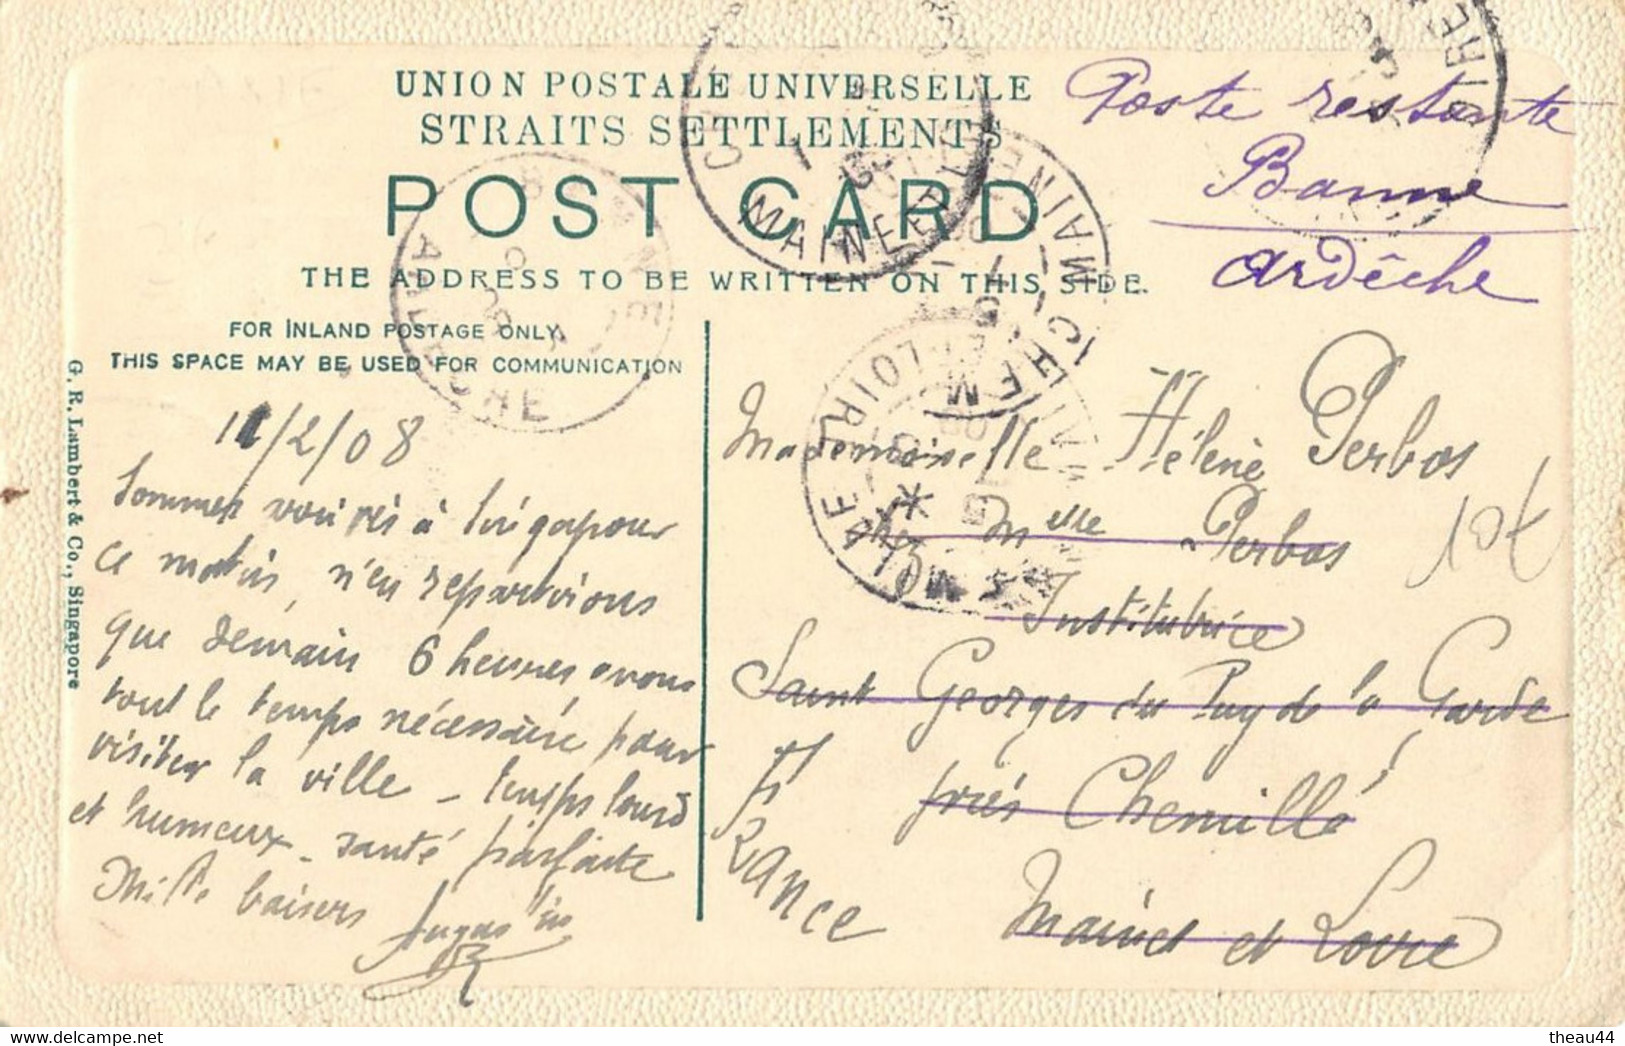 UNION POSTALE UNIVERSELLE
STRAITS SETTLEMENTS
POST CARD
THE ADDRESS TO BE WRITTEN ON THIS SIDE.
FOR INLAND POSTAGE ONLY
THIS SPACE MAY BE USED FOR COMMUNICATION
G. R. Lambert & Co., Singapore
Poste restante
Banne
Ardèche
11/2/08
Sommes à Singapour
ce matin, n'en repartirons
que demain 6 heures avons
tout le temps nécessaire pour
visiter la ville – temps lourd
et humeux – santé parfaite
Mille baisers
Augustin
Mademoiselle Hélène Perbos
chez Melle Perbos
Institutrice
Saint Georges du Puy de la Garde
près Chemillé
Maine et Loire
France
10t
BANNE
ARDECHE
CHEMILLE
MAINE-ET-LOIRE
theau44